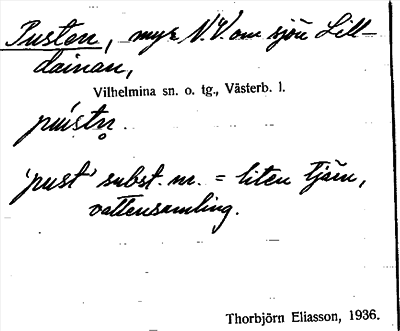 Pusten, myr N.V. om sjön Lill-
dainan,
Vilhelmina sn. o. tg., Västerb. l.
pu̍stn̥.
'pust' subst. nr. = liten tjärn,
vattensamling.
Thorbjörn Eliasson, 1936.